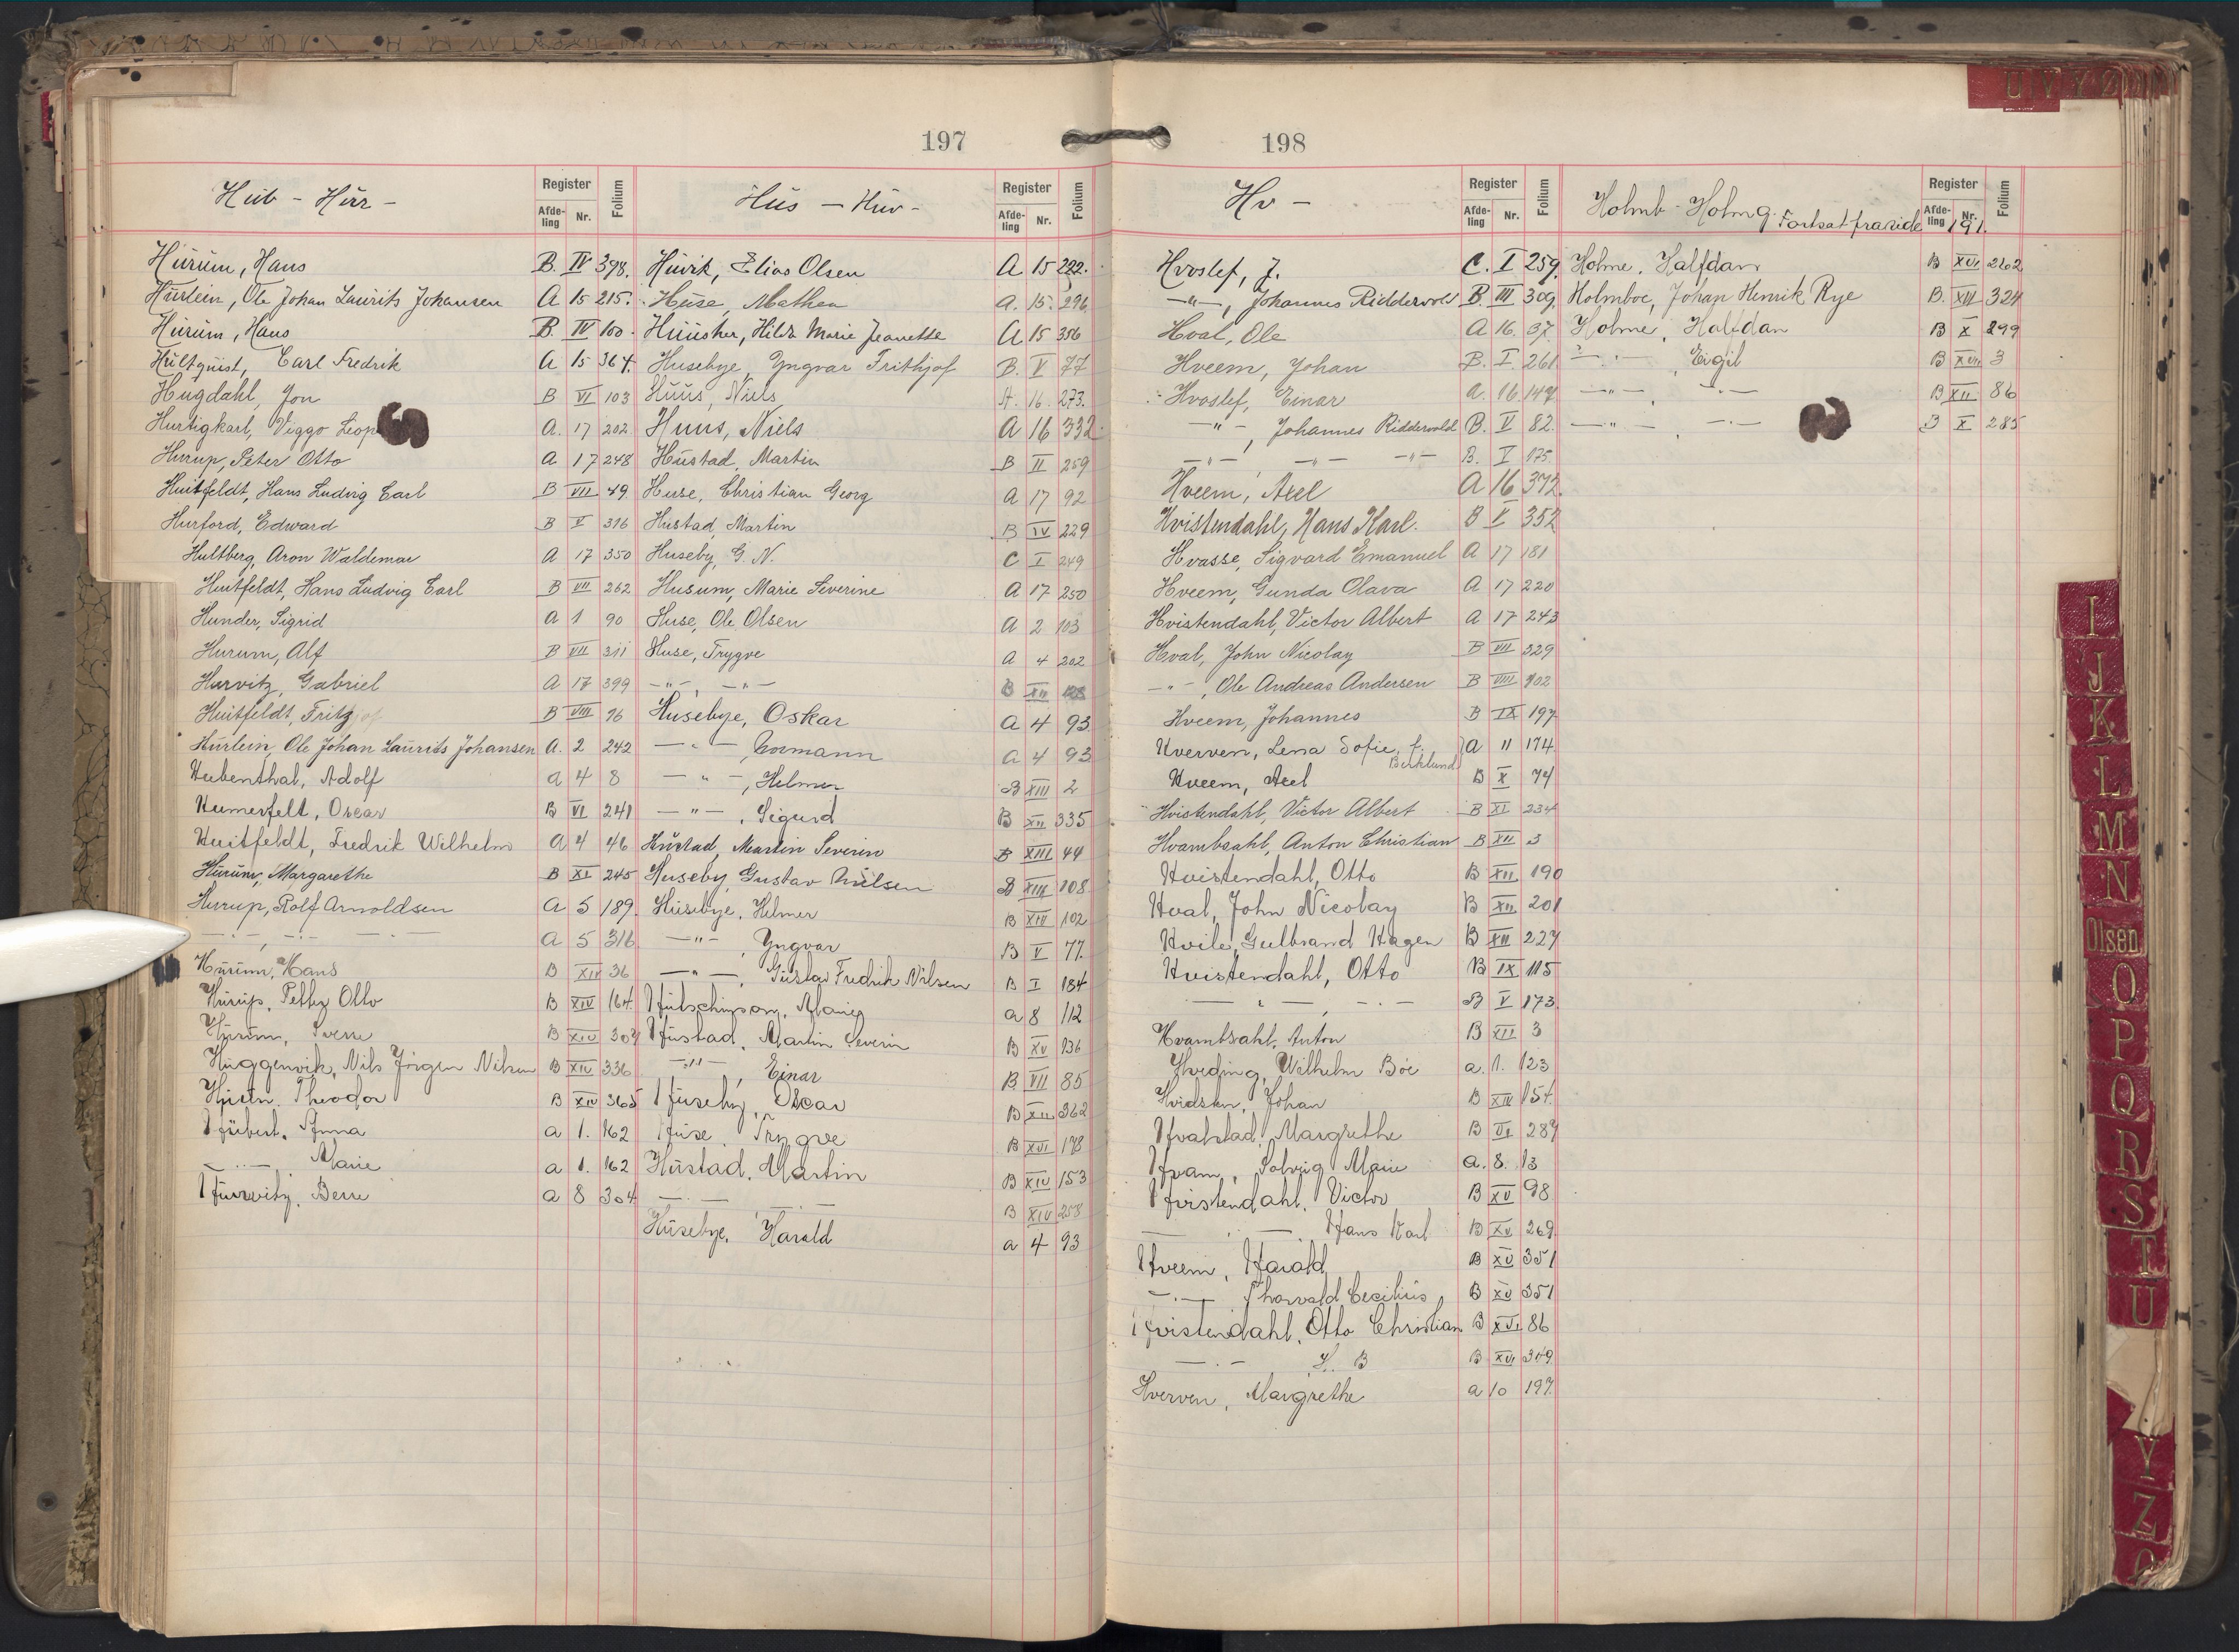 197
Hub - Hur -
Register
Afde-ling Nr. Folium
Hurum, Hans B. IV 398.
Hurlein, Ole Johan Laurits Johansen A 15 215.
Hurum, Haus B. IV 100.
Hultquist, Carl Fredrik A 15 364.
Hugdahl, Jon B VI 103
Hurtigkarl, Viggo Leop A. 17 202
Hurup, Peter Otto A 17 248
Huitfeldt, Hans Ludvig Carl B VII 49
Hurford, Edward B V 316
Hultberg, Aron Waldemar A 17 350
Huitfeldt, Hans Ludvig Carl B VII 262
Hunder, Sigrid A 1 90
Hurum, Alf B VII 311
Hurvitz, Gabriel A 17 399
Huitfeldt, Fritzjof B VIII 96
Hurlein, Ole Johan Laurits Johansen A. 2 242
Hubenthal, Adolf A 4 8
Humerfelt, Oscar B VI 241
Huitfeldt, Fredrik Wilhelm A 4 46
Hurum, Margarethe B XI 245
Hurup, Rolf Arnoldsen A 5 189
—"—, —"— —"— A 5 316
Hurum, Hans B XIV 36
Hurup, Petter Otto B XIV 164
Hurum, Sverre B XIV 304
Huggenvik, Nils Jörgen Nilsen B XIV 336
Theodor B XIV 365
Hübert, Anna a 1. 162
—"— Marie a 1. 162
Hurwitz, Berre a 8 304
Hus - Huv -
Register
Afde-ling Nr. Folium
Huvik, Elias Olsen A. 15 222.
Huse, Mathea A. 15. 296
Huusher, Hilda Marie Jeanette A 15 356
Husebye, Yngvar Frithjof B. V 77
Huus, Niels A. 16. 273.
Huus, Niels A 16 332
Hustad, Martin B II 259
Huse, Christian Georg A 17 92
Hustad, Martin B IV 229
Huseby, G. N. C I 249
Husum, Marie Severine A 17 250
Huse, Ole Olsen A 2 103
Huse, Trygve A 4 202
—"—, —"— B XII
Husebye, Oskar A 4 93
—"— Normann A 4 93
—"—, Helmer B XIII 2
—"—, Sigurd B XII 335
Hustad, Martin Severin B XIII 44
Huseby, Gustav Nilsen B XIII 108
Husebye, Helmer B XIV 102
—"— Yngvar B V 77.
—"—, Gustav Fredrik Nilsen B I 184
a 8 112
Hustad, Martin Severin B XV 136
—"—, Einar B VII 85
Huseby, Oscar B XII 362
Huse, Trygve B XVI 178
Hustad, Martin B XIV 153
—"— B XIV 258
Husebye, Harald a 4 93
198
Hv -
Register
Afde-ling Nr. Folium
Hvoslef, J. C. I 259.
—"—, Johannes Riddervold B. III 309.
Hval, Ole A 16. 37.
Hveem, Johan B. I. 261
Hvoslef, Einar A. 16. 147
—"—, Johannes Riddervold B. V 82
—"—, —"— —"— B. V 175.
Hveem, Axel A 16 372.
Hvistendahl, Hans Karl. B V 352
Hvasse, Sigvard Emanuel A 17 181
Hveem, Gunda Olava A 17 220
Hvistendahl, Victor Albert A 17 243
Hval, John Nicolay B VII 329
—"—, Ole Andreas Andersen B VIII 402
Hveem, Johannes B IX 197
Hverven, Lena Sofie, f. Berklund A 11 174
Hveem, Axel B X 74
Hvistendahl, Victor Albert B XI 234
Hvambsahl, Anton Christian B XII 3
Hvistendahl, Otto B XII 190
Hval, John Nicolay B XII 201
Hvile, Gulbrand Hagen B XII 227
Hvistendahl, Otto B IX 115
—"—, —"— B V 173
Hvambsahl, Anton B XII 3
Hveding, Wilhelm Böe a. 1. 123
Hvidsten, Johan B XIII 154.
Hvalstad, Margrethe B VI 287
Hvam, Solveig Marie a. 8. 13
Hvistendahl, Victor B XV 98
—"— Hans Karl B XV 269
Hveem, Harald B XV 351
—"— Thorvald Cecilius B XV 351
Hvistendahl, Otto Christian B XVI 86
—"— H. B B XVI 309
Hverven, Margrethe a 10 197.
Holmb - Holmg. Fortsat fra side 191.
Register
Afde-ling Nr. Folium
Holme, Halfdan B XVI 262
Holmboe, Johan Henrik Rye B. XIII 324
Holme, Halfdan B X 299
—"—, Eigil B XVII 3
—"—, —"— B XII 86
—"—, —"— B X 285
U V Y Z
I
J
K
L
M
N
Olsen
O
P
Q
R
S
T
U
Y
Z